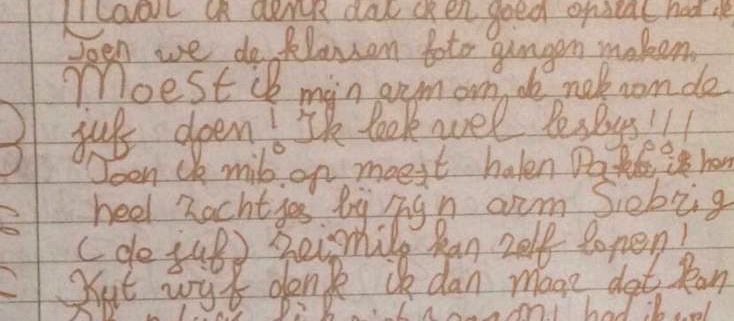 Maar ik denk dat ik er goed opstal had ik
Toen we de klassen foto gingen maken.
Moest ik mijn arm om de nek van de
juf doen! Ik leek wel lesbys!!!
Toen ik milo op moest halen Pakte ik hem
heel zachtjes bij zyn arm Siebrig
(de juf) zei: Milo kan zelf lopen!
Kut wijf denk ik dan maar dat kan
had ik wel